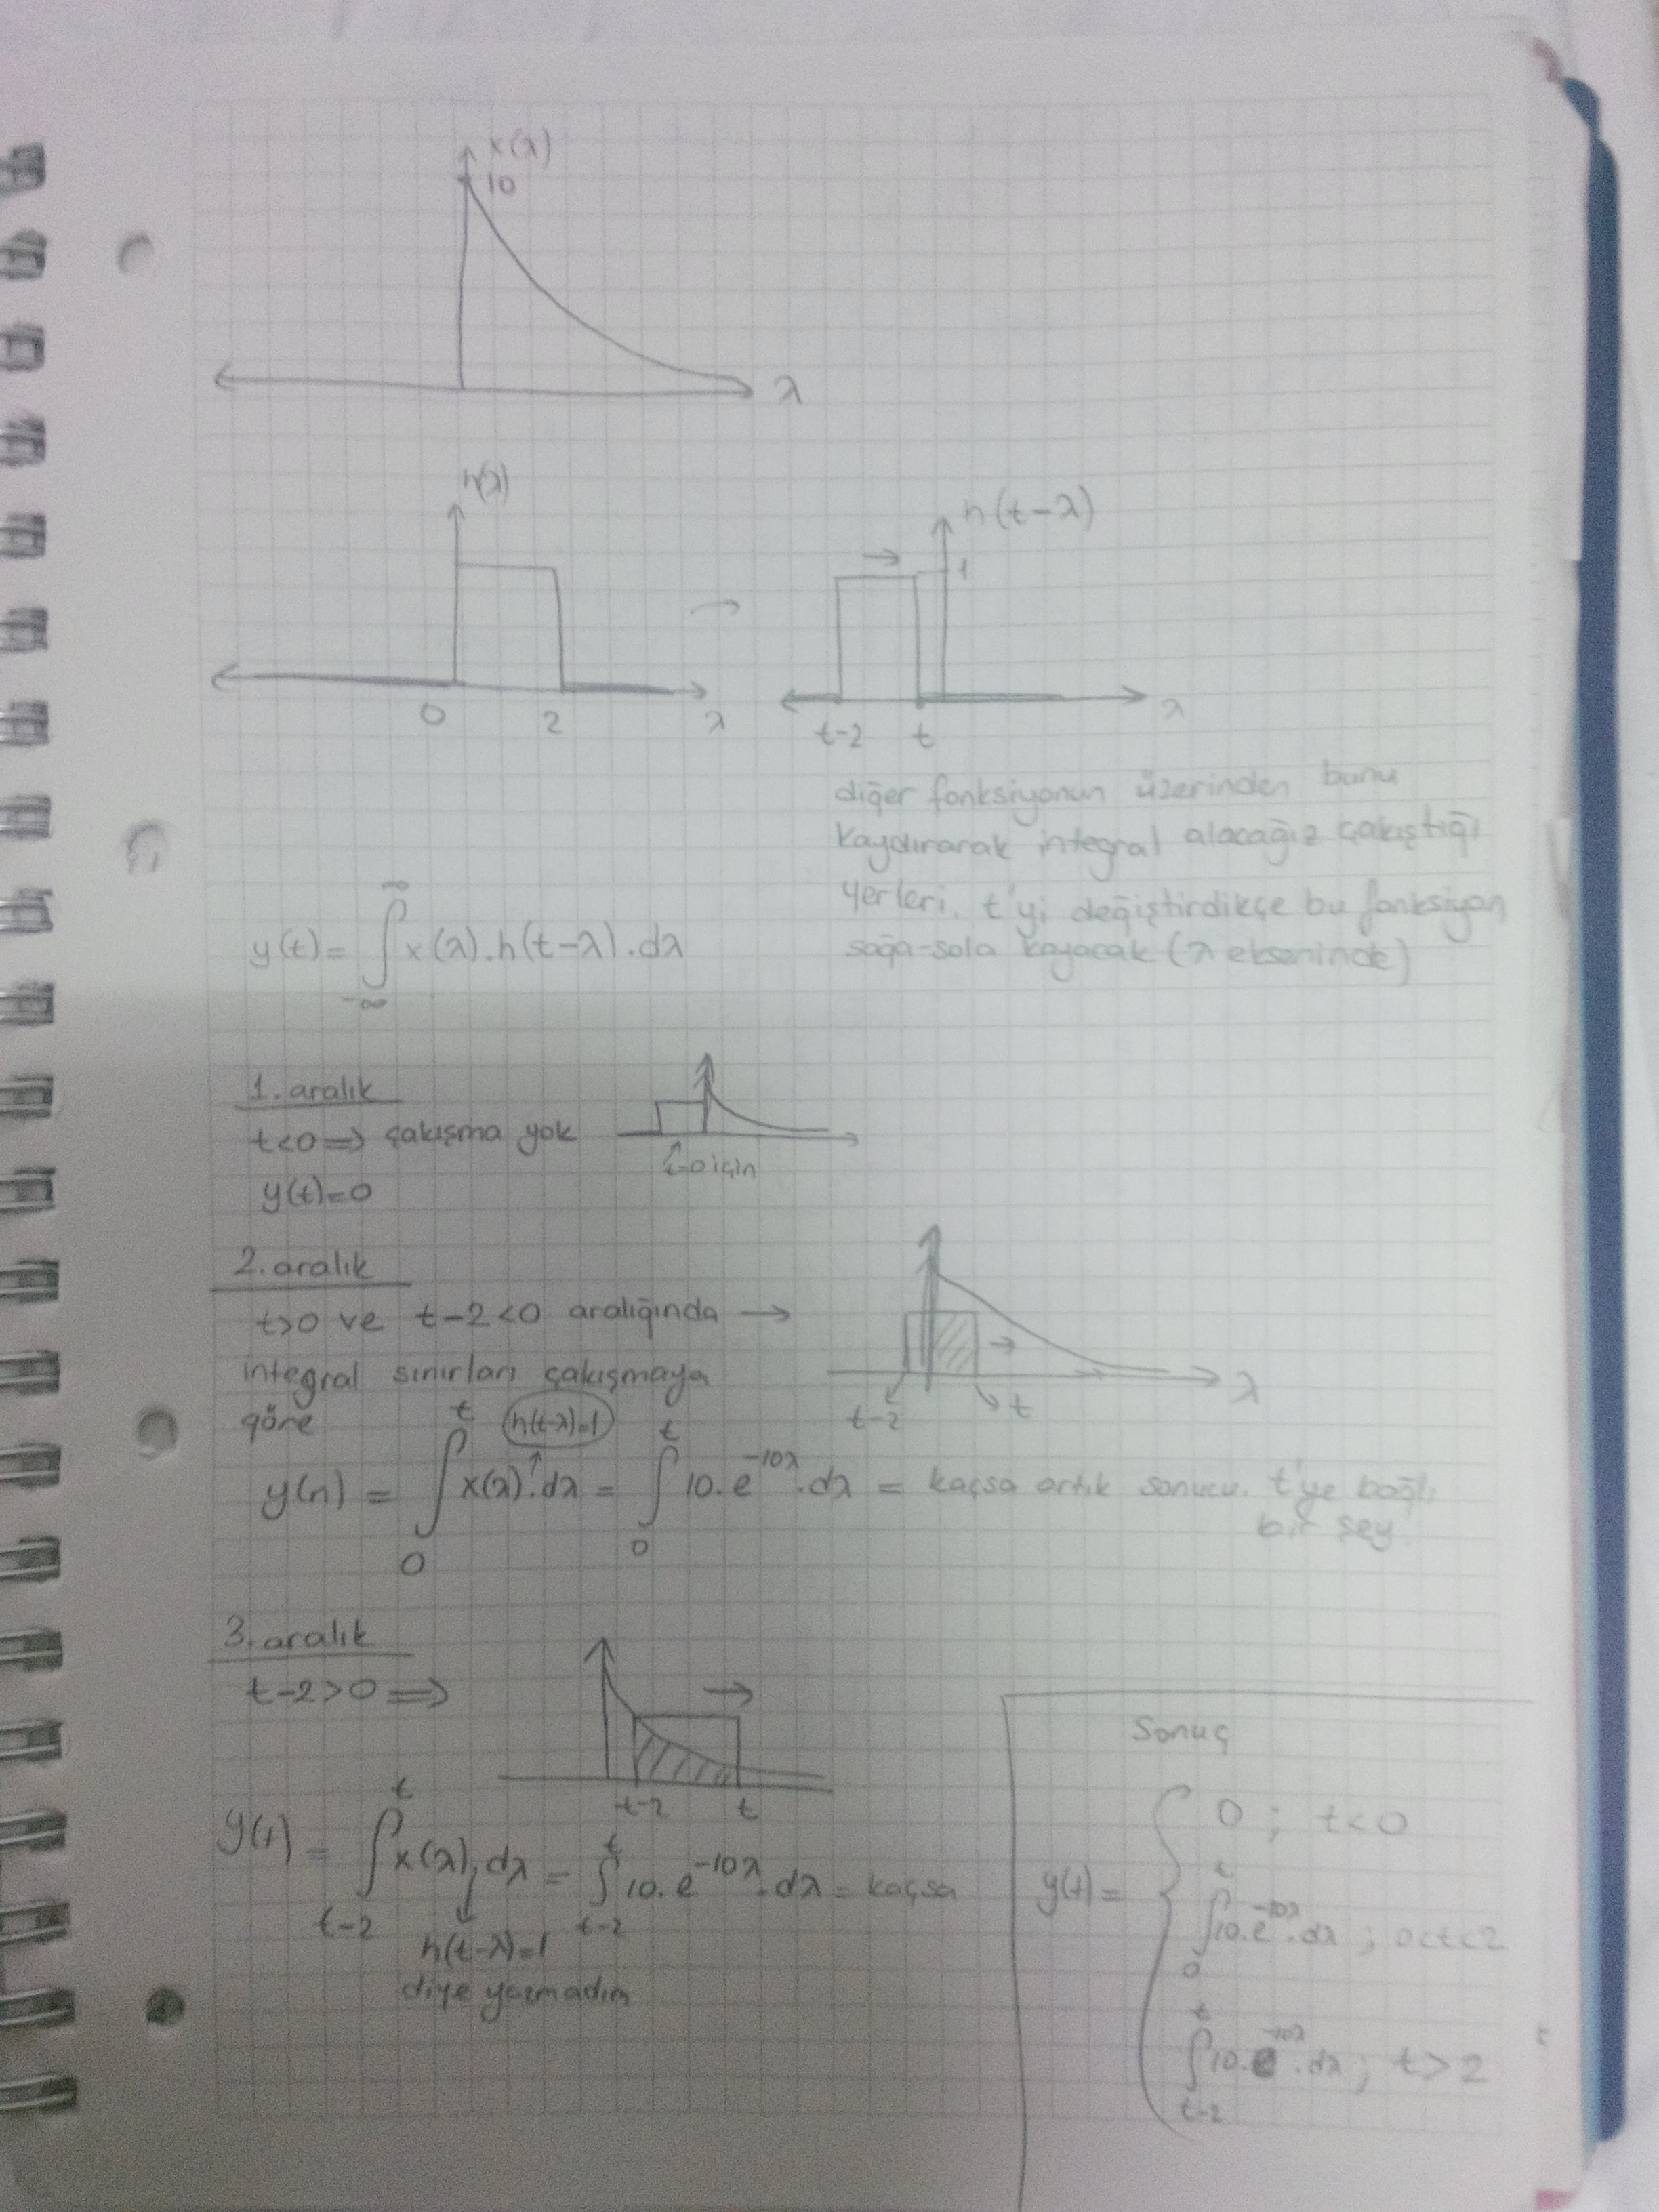 x(λ)
10
λ
h(λ)
0 2 λ
h(t-λ)
1
t-2 t λ
diğer fonksiyonun üzerinden bunu
kaydırarak integral alacağız çakıştığı
yerleri. t'yi değiştirdikçe bu fonksiyon
sağa-sola kayacak (λ ekseninde)
y(t) = ∫_{-∞}^{∞} x(λ).h(t-λ).dλ
1. aralık
t<0 => çakışma yok
t=0 için
y(t)=0
2. aralık
t>0 ve t-2<0 aralığında →
integral sınırları çakışmaya
göre
t-2 t λ
h(t-λ)=1
y(n) = ∫_0^t x(λ).dλ = ∫_0^t 10.e^{-10λ}.dλ = kaçsa artık sonucu. t'ye bağlı
bir şey
3. aralık
t-2>0 =>
t-2 t
y(t) = ∫_{t-2}^t x(λ).dλ = ∫_{t-2}^t 10.e^{-10λ}.dλ = kaçsa
h(t-λ)=1
diye yazmadım
Sonuç
y(t) = { 0 ; t<0
∫_0^t 10.e^{-10λ}.dλ ; 0<t<2
∫_{t-2}^t 10.e^{-10λ}.dλ ; t>2